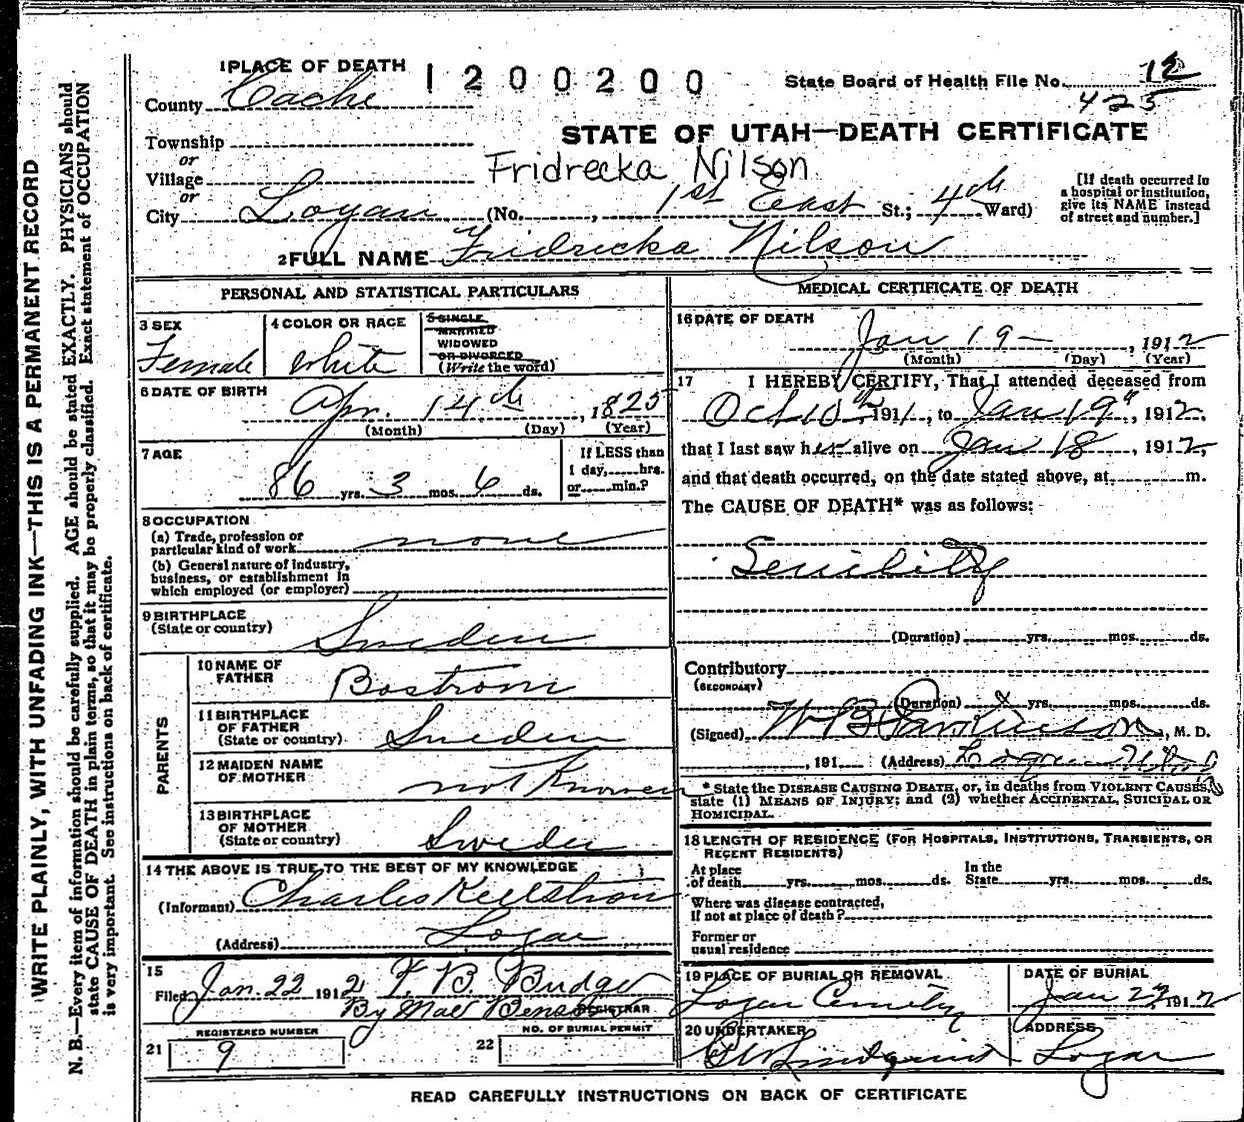 WRITE PLAINLY, WITH UNFADING INK—THIS IS A PERMANENT RECORD
N. B.—Every item of information should be carefully supplied. AGE should be stated EXACTLY. PHYSICIANS should
state CAUSE OF DEATH in plain terms, so that it may be properly classified. Exact statement of OCCUPATION
is very important. See instructions on back of certificate.
1 PLACE OF DEATH
1200200
State Board of Health File No. 12
425
County Cache
STATE OF UTAH—DEATH CERTIFICATE
Township
or
Village
Fridrecka Nilson
or
City Logan (No. , 1st East St.; 4th Ward)
[If death occurred in
a hospital or institution,
give its NAME instead
of street and number.]
2 FULL NAME Fridricka Nilson
PERSONAL AND STATISTICAL PARTICULARS
3 SEX
Female
4 COLOR OR RACE
White
5 SINGLE
MARRIED
WIDOWED
OR DIVORCED
(Write the word)
6 DATE OF BIRTH
Apr. 14th, 1825
(Month) (Day) (Year)
7 AGE
86 yrs. 3 mos. 6 ds.
If LESS than
1 day,......hrs.
or......min.?
8 OCCUPATION
(a) Trade, profession or
particular kind of work none
(b) General nature of industry,
business, or establishment in
which employed (or employer)
9 BIRTHPLACE
(State or country) Sweden
PARENTS
10 NAME OF
FATHER Bostrom
11 BIRTHPLACE
OF FATHER
(State or country) Sweden
12 MAIDEN NAME
OF MOTHER not Known
13 BIRTHPLACE
OF MOTHER
(State or country) Sweden
14 THE ABOVE IS TRUE TO THE BEST OF MY KNOWLEDGE
(Informant) Charles Kellstrom
(Address) Logan
15
Filed Jan. 22 1912 F. B. Budge
By Mae Benson REGISTRAR
REGISTERED NUMBER
21 9
NO. OF BURIAL PERMIT
22
MEDICAL CERTIFICATE OF DEATH
16 DATE OF DEATH
Jan 19—, 1912
(Month) (Day) (Year)
17 I HEREBY CERTIFY, That I attended deceased from
Oct 10th 1911, to Jan 19", 1912,
that I last saw her alive on Jan 18, 1912,
and that death occurred, on the date stated above, at m.
The CAUSE OF DEATH* was as follows:
Senility
(Duration) yrs. mos. ds.
Contributory
(SECONDARY)
(Duration) x yrs. mos. ds.
(Signed) W B Parkinson, M. D.
, 191 (Address) Logan Utah
* State the DISEASE CAUSING DEATH, or, in deaths from VIOLENT CAUSES,
state (1) MEANS OF INJURY; and (2) whether ACCIDENTAL, SUICIDAL OR
HOMICIDAL.
18 LENGTH OF RESIDENCE (FOR HOSPITALS, INSTITUTIONS, TRANSIENTS, OR
RECENT RESIDENTS)
At place
of death yrs. mos. ds.
In the
State yrs. mos. ds.
Where was disease contracted,
if not at place of death?
Former or
usual residence
19 PLACE OF BURIAL OR REMOVAL
Logan Cemetery
DATE OF BURIAL
Jan 22 1912
20 UNDERTAKER
Lindquist
ADDRESS
Logan
READ CAREFULLY INSTRUCTIONS ON BACK OF CERTIFICATE